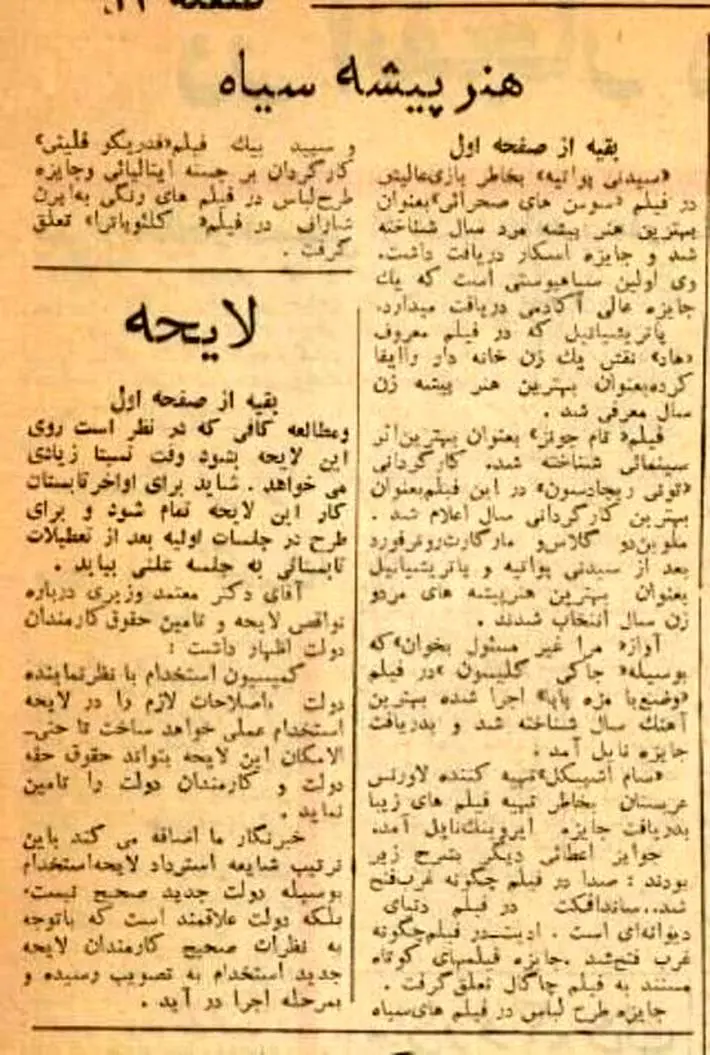 صفحه
هنرپیشه سیاه
بقیه از صفحه اول
«سیدنی پواتیه» بخاطر بازی عالیش
در فیلم «سوسن های صحرائی» بعنوان
بهترین هنر پیشه مرد سال شناخته
شد و جایزه اسکار دریافت داشت.
وی اولین سیاهپوستی است که یك
جایزه عالی آکادمی دریافت میدارد.
پاتریشیانیل که در فیلم معروف
«هاد» نقش یك زن خانه دار راایفا
کرده بعنوان بهترین هنر پیشه زن
سال معرفی شد .
فیلم« تام جونز» بعنوان بهترین اثر
سینمائی شناخته شد. کارگردانی
«تونی ریچاردسون» در این فیلم بعنوان
بهترین کارگردانی سال اعلام شد .
ملوین دو گلاس و مارگارت روترفورد
بعد از سیدنی پواتیه و پاتریشیانیل
بعنوان بهترین هنرپیشه های مردو
زن سال انتخاب شدند .
آواز« مرا غیر مسئول بخوان»که
بوسیله« جاکی گلیسون »در فیلم
پاپا» اجرا شده بهترین
آهنك سال شناخته شد و بدریافت
جایزه نایل آمد .
«سام اشپیگل»تهیه کننده لاورنس
عربستان بخاطر تهیه فیلم های زیبا
بدریافت جایزه نایل آمد.
جوایز اعطائی دیگر بشرح زیر
بودند : صدا در فیلم چگونه غرب فتح
شد.. ساندافکت در فیلم دنیای
دیوانه ای است . ادیت در فیلم چگونه
غرب فتح شد .جایزه فیلمهای کوتاه
مستند به فیلم چاگال تعلق گرفت .
جایزه طرح لباس در فیلم های سیاه
و سپید بیك فیلم«فدریکو فلینی»
کارگردان بر جسته ایتالیائی وجایزه
طرح لباس در فیلم های رنگی به ایرن
شاراف در فیلم« کلئوپاترا» تعلق
گرفت .
لایحه
بقیه از صفحه اول
ومطالعه کافی که در نظر است روی
این لایحه بشود وقت نسبتا زیادی
می خواهد . شاید برای اواخر تابستان
کار این لایحه تمام شود و برای
طرح در جلسات اولیه بعد از تعطیلات
تابستانی به جلسه علنی بیاید .
آقای دکتر معتمد وزیری درباره
نواقص لایحه و تامین حقوق کارمندان
دولت اظهار داشت :
کمیسیون استخدام با نظر نماینده
دولت ،اصلاحات لازم را در لایحه
استخدام عملی خواهد ساخت تا حتی‌ـ
الامکان این لایحه بتواند حقوق حقه
دولت و کارمندان دولت را تامین
نماید .
خبرنگار ما اضافه می کند باین
ترتیب شایعه استرداد لایحه استخدام
بوسیله دولت جدید صحیح نیست،
بلکه دولت علاقمند است که باتوجه
به نظرات صحیح کارمندان لایحه
جدید استخدام به تصویب رسیده و
بمرحله اجرا در آید .